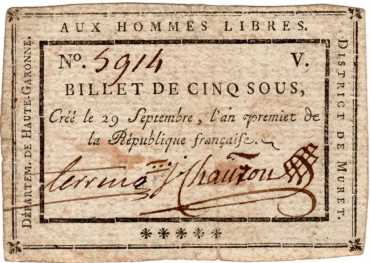 AUX HOMMES LIBRES.
DÉPARTEM. DE HAUTE-GARONNE.
DISTRICT DE MURET.
No. 5914 V.
BILLET DE CINQ SOUS,
Créé le 29 Septembre, l'an premier de
la République française.
*****